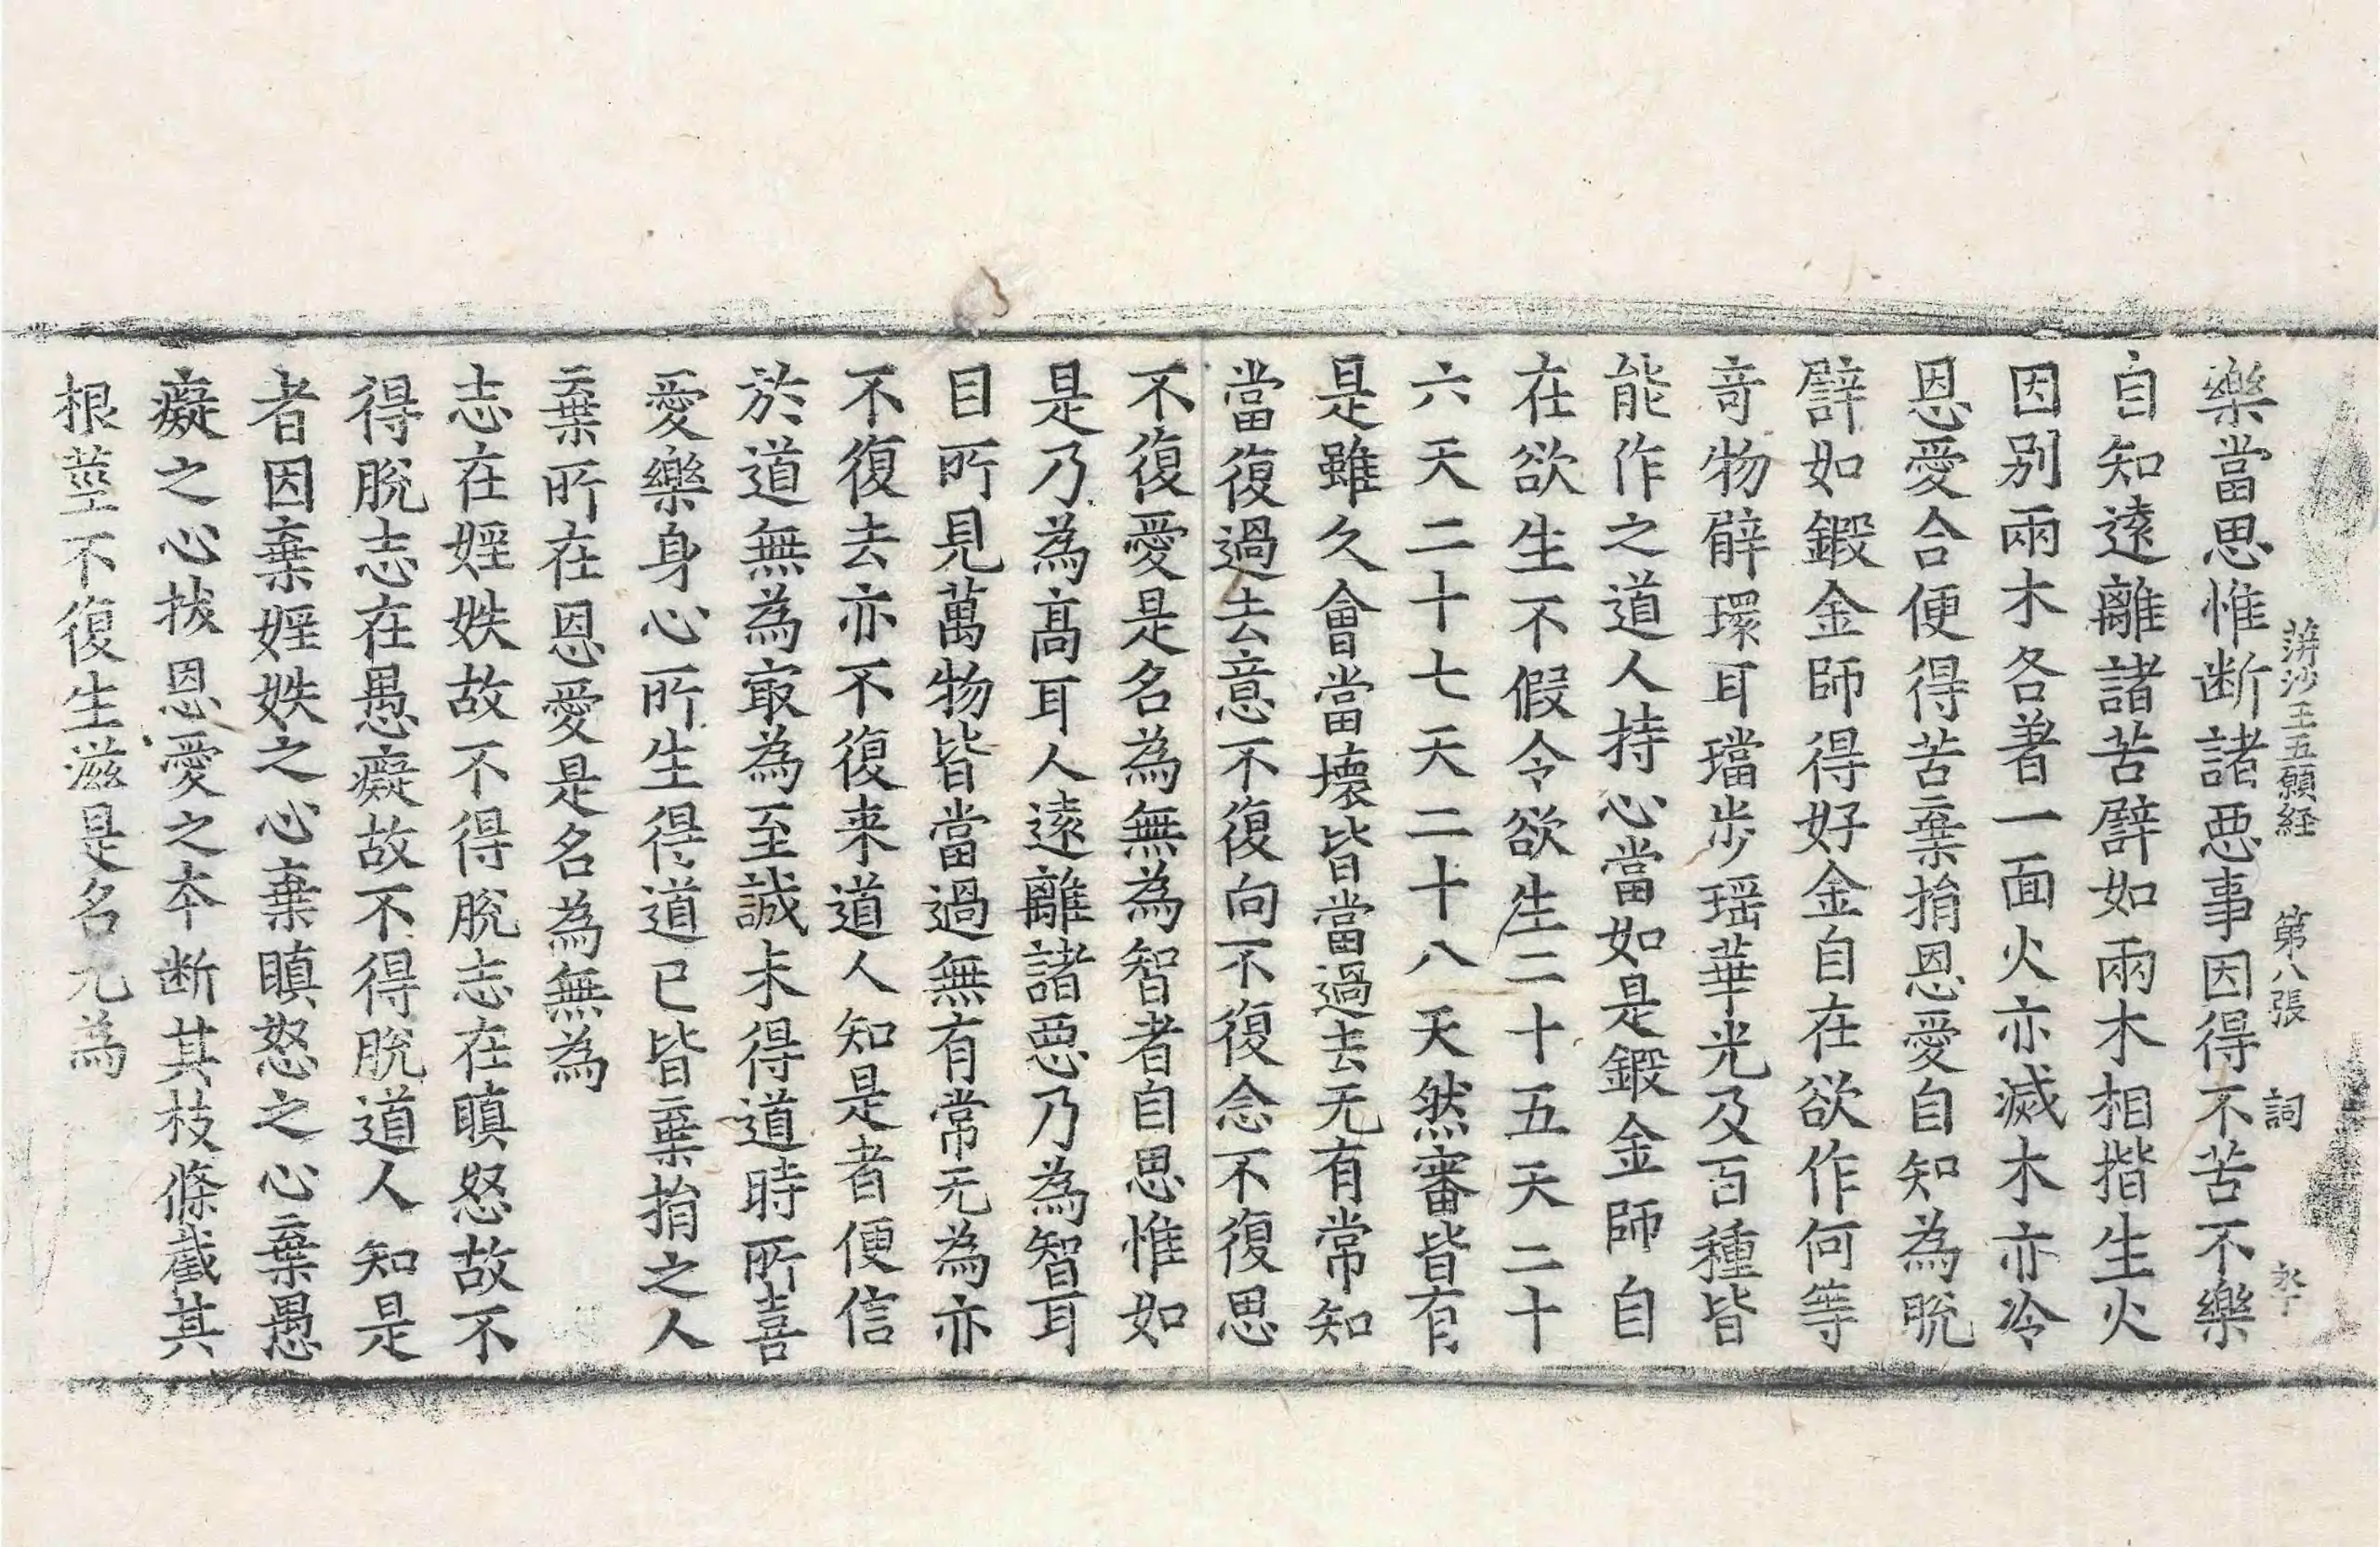 蓱沙王五願経 第八張 詞
樂當思惟断諸惡事因得不苦不樂
自知遠離諸苦譬如兩木相揩生火
因别兩木各著一面火亦滅木亦冷
恩愛合便得苦棄捐恩愛自知為脫
譬如鍛金師得好金自在欲作何等
竒物臂環耳璫步瑶華光及百種皆
能作之道人持心當如是鍛金師自
在欲生不假令欲生二十五天二十
六天二十七天二十八天然審皆有
是雖久會當壞皆當過去无有常知
當復過去意不復向不復念不復思
不復愛是名為無為智者自思惟如
是乃為高耳人遠離諸惡乃為智耳
目所見萬物皆當過無有常无為亦
不復去亦不復来道人知是者便信
於道無為㝡為至誠未得道時所喜
愛樂身心所生得道已皆棄捐之人
棄所在恩愛是名為無為
志在婬妷故不得脫志在瞋怒故不
得脫志在愚癡故不得脫道人知是
者因棄婬妷之心棄瞋怒之心棄愚
癡之心拔恩愛之夲断其枝條截其
根莖不復生滋是名无為